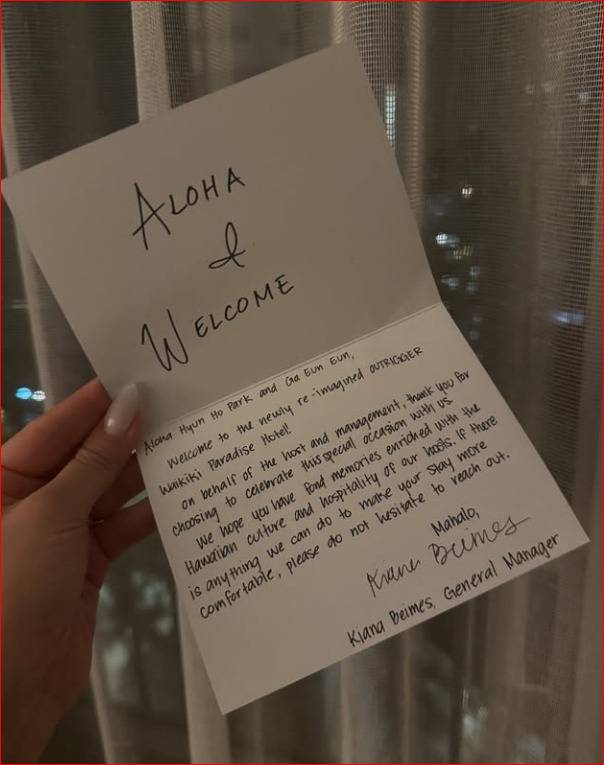 ALOHA
&
WELCOME
Aloha Hyun Ho Park and Ga Eun Eun,
Welcome to the newly re-imagined OUTRIGGER
Waikiki Paradise Hotel!
On behalf of the host and management, thank you for
choosing to celebrate this special occasion with us.
We hope you have fond memories enriched with the
Hawaiian culture and hospitality of our hosts. If there
is anything we can do to make your stay more
comfortable, please do not hesitate to reach out.
Mahalo,
Kiana Beimes
Kiana Beimes, General Manager